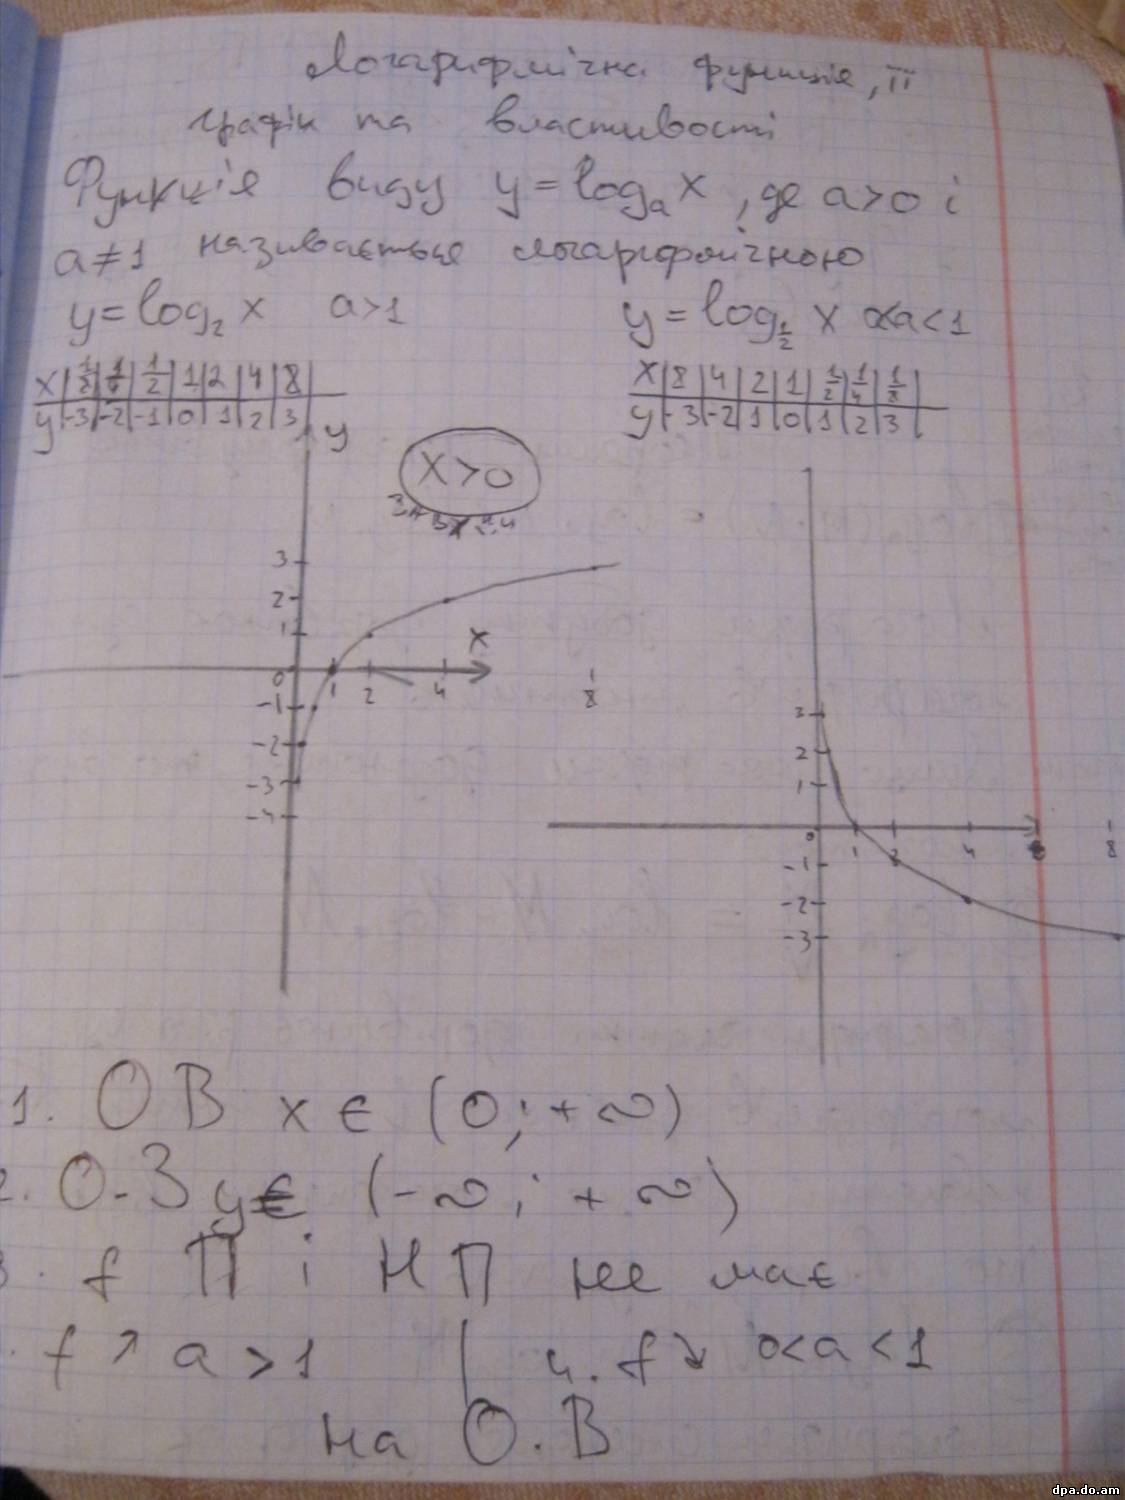 Логарифмічна функція, її
графік та властивості
Функція виду y = logₐ x, де a>0 і
a≠1 називається логарифмічною
y = log₂ x a>1
y = log½ x 0<a<1
x 1/8 1/4 1/2 1 2 4 8
y -3 -2 -1 0 1 2 3
x 8 4 2 1 1/2 1/4 1/8
y -3 -2 1 0 1 2 3
y
x>0
3
2
1
x
0 1 2 4 8
-1
-2
-3
-4
3
2
1
0 1 2 4 8
-1
-2
-3
1. ОВ x є (0; +∞)
2. О-З y є (-∞; +∞)
3. f П і НП не має
f ↗ a>1 | 4. f ↘ 0<a<1
на О.В
dpa.do.am